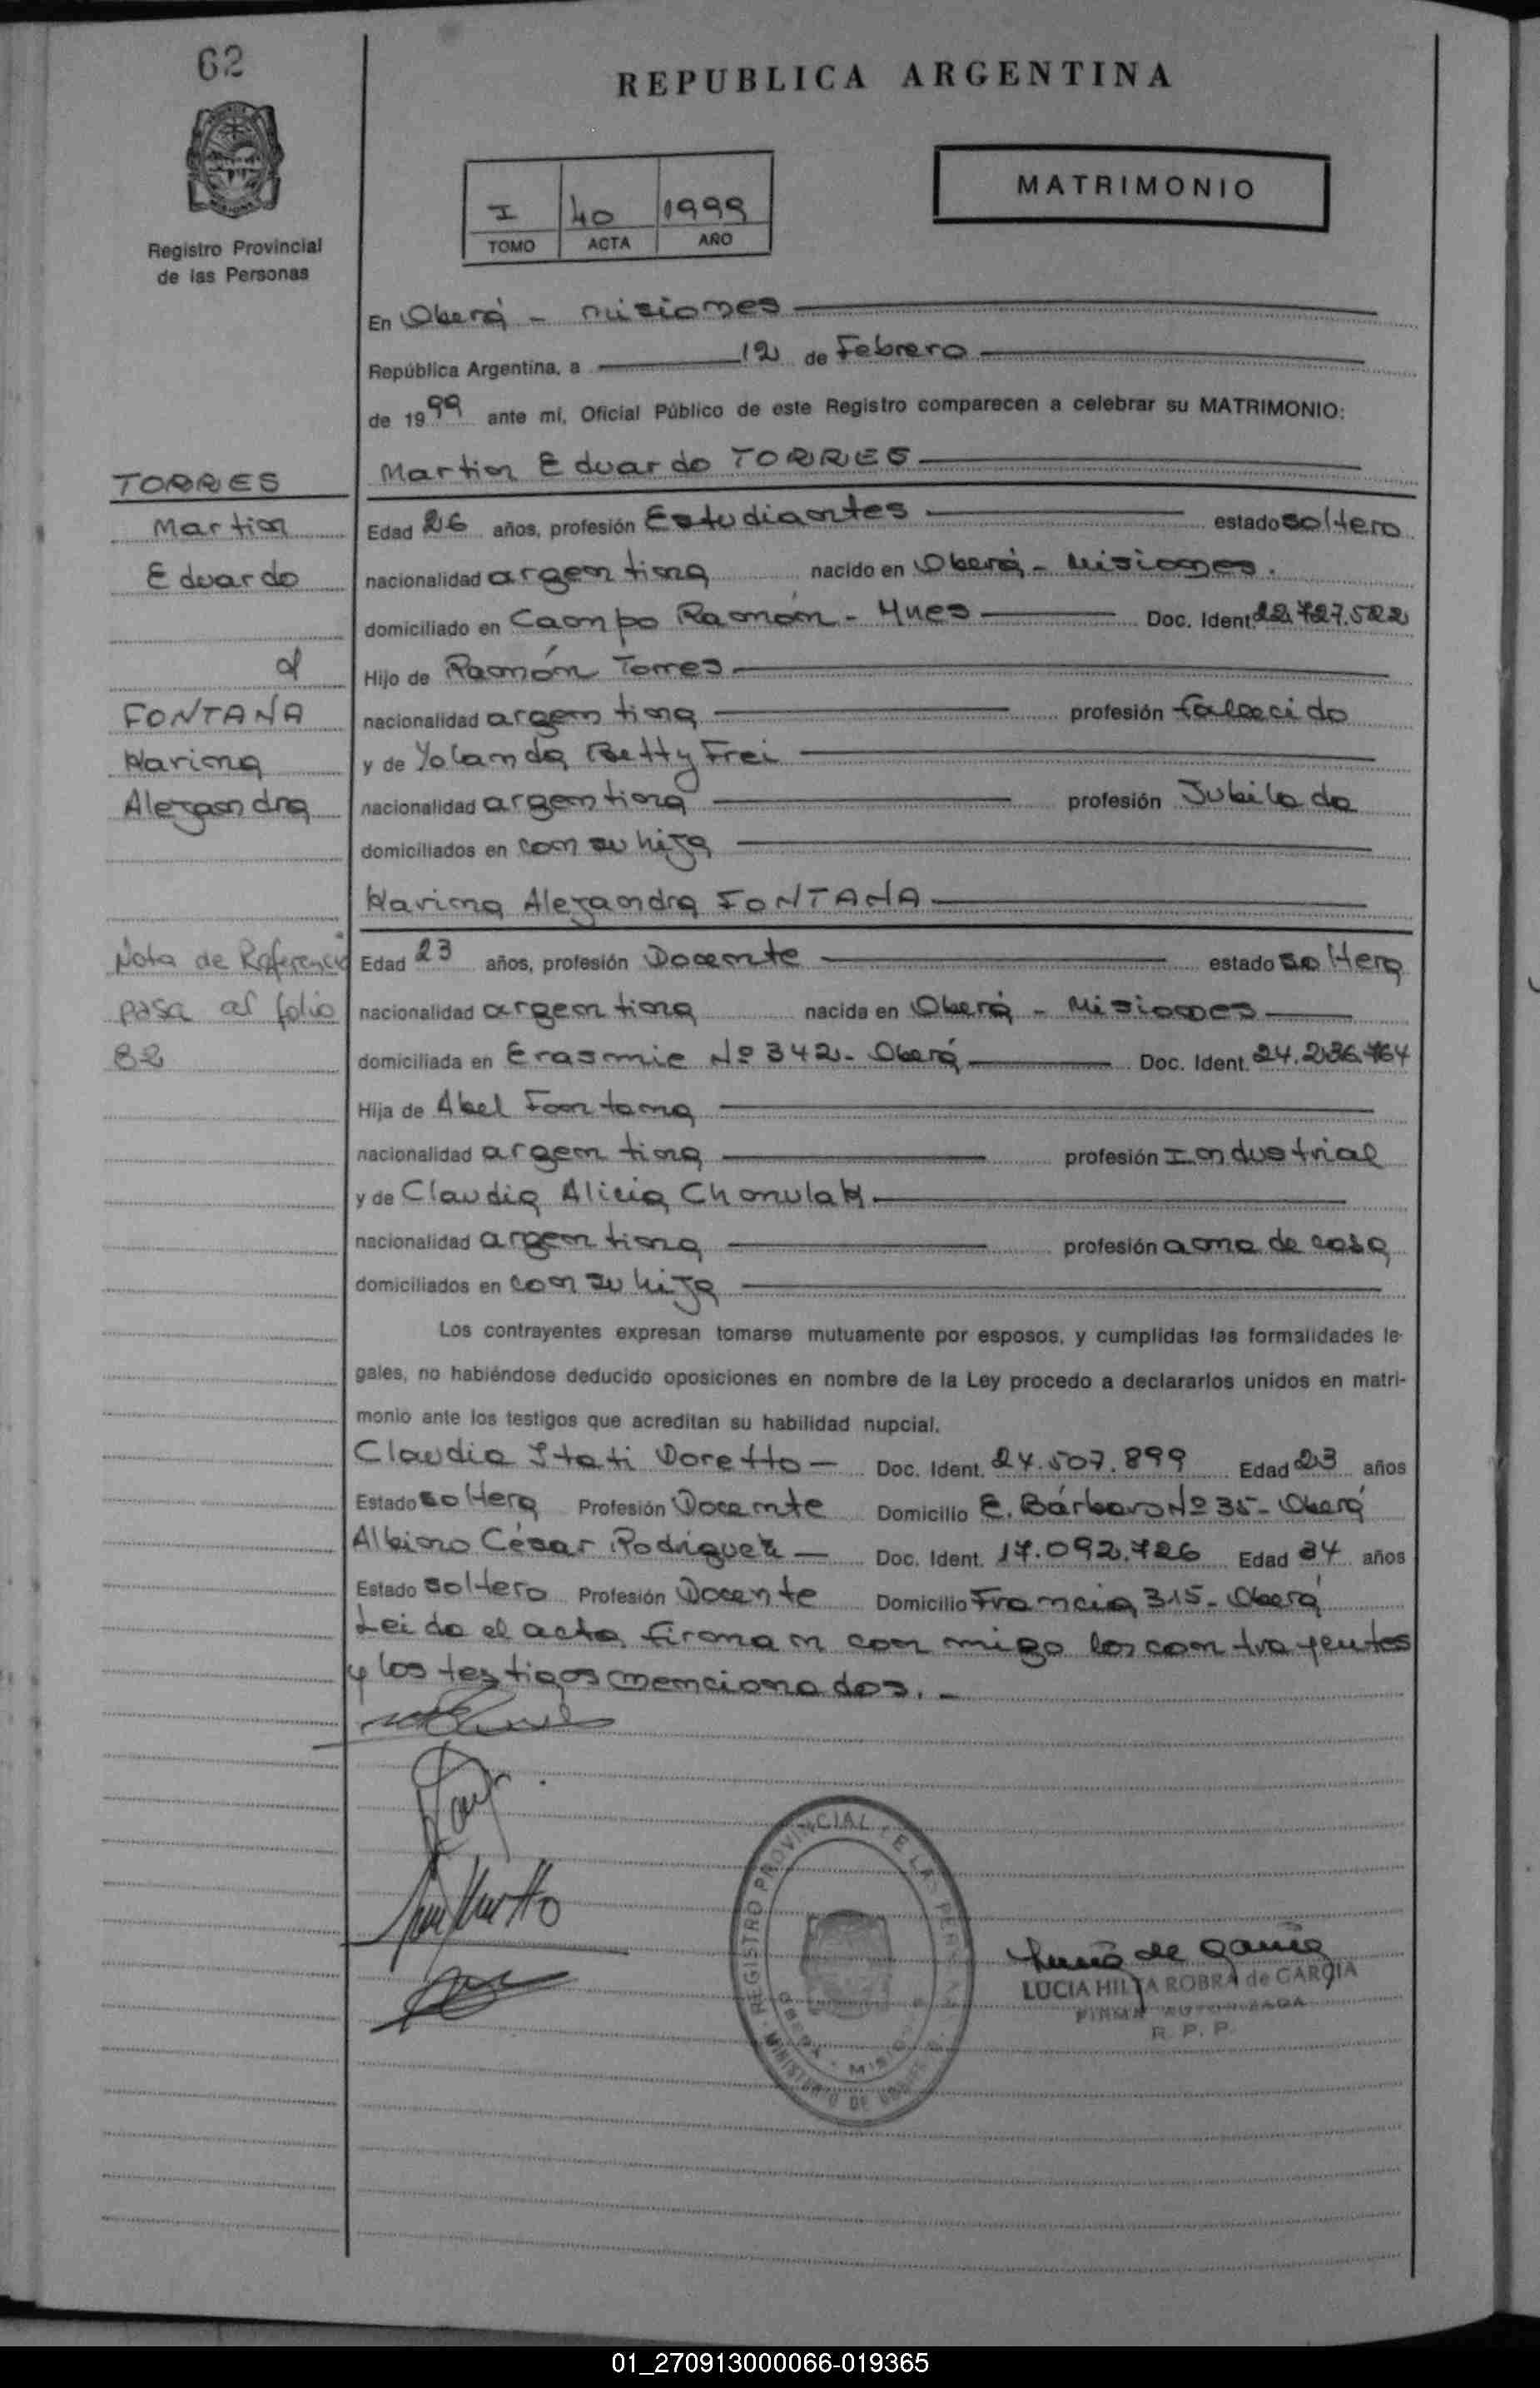 62
REPUBLICA ARGENTINA
MATRIMONIO
I 40 1999
TOMO ACTA AÑO
Registro Provincial
de las Personas
En Oberá - Misiones
República Argentina, a 12 de Febrero
de 1999 ante mí, Oficial Público de este Registro comparecen a celebrar su MATRIMONIO:
Martin Eduardo TORRES
TORRES
Martin
Eduardo
FONTANA
Karina
Alejandra
Nota de Referencia
pasa al folio
82
Edad 26 años, profesión Estudiantes estado soltero
nacionalidad argentina nacido en Oberá - Misiones.
domiciliado en Campo Ramón - Mnes Doc. Ident. 22.727.522
Hijo de Ramón Torres
nacionalidad argentina profesión fallecido
y de Yolanda Betty Frei
nacionalidad argentina profesión Jubilada
domiciliados en con su hija
Karina Alejandra FONTANA
Edad 23 años, profesión Docente estado soltera
nacionalidad argentina nacida en Oberá - Misiones
domiciliada en Erasmie Nº 342 - Oberá Doc. Ident. 24.236.764
Hija de Abel Fontana
nacionalidad argentina profesión Industrial
y de Claudia Alicia Chomulak
nacionalidad argentina profesión ama de casa
domiciliados en con su hija
Los contrayentes expresan tomarse mutuamente por esposos, y cumplidas las formalidades le-
gales, no habiéndose deducido oposiciones en nombre de la Ley procedo a declararlos unidos en matri-
monio ante los testigos que acreditan su habilidad nupcial.
Claudia Itati Doretto - Doc. Ident. 24.507.899 Edad 23 años
Estado soltera Profesión Docente Domicilio E. Bárbaro Nº 35 - Oberá
Albino César Rodriguez - Doc. Ident. 17.092.726 Edad 34 años
Estado soltero Profesión Docente Domicilio Francia 315 - Oberá
Leida el acta, firman con migo los contrayentes
y los testigos mencionados. -
REGISTRO PROVINCIAL DE LAS PERSONAS
MINISTERIO DE GOBIERNO
LUCIA HILDA ROBRA de GARCIA
FIRMA AUTORIZADA
R. P. P.
01_270913000066-019365